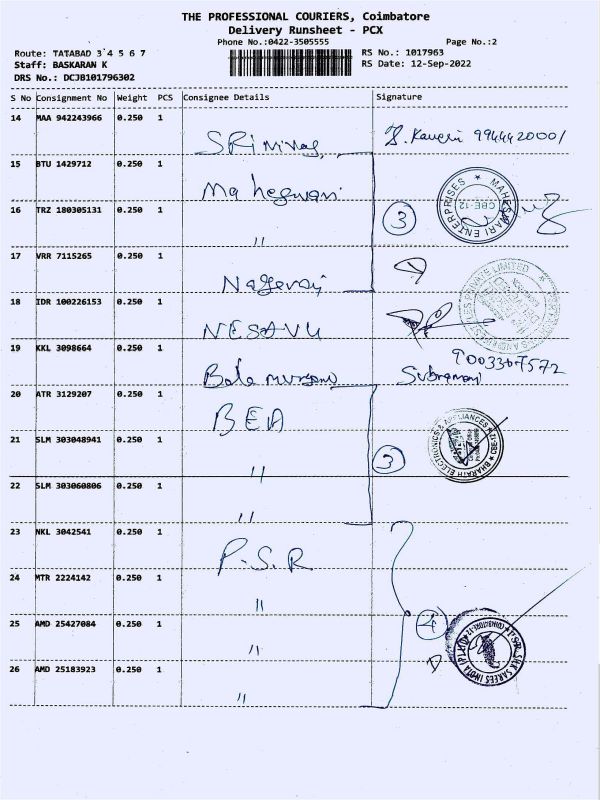 THE PROFESSIONAL COURIERS, Coimbatore
Delivery Runsheet - PCX
Phone No.:0422-3505555
Page No.:2
Route: TATABAD 3 4 5 6 7
RS No.: 1017963
Staff: BASKARAN K
RS Date: 12-Sep-2022
DRS No.: DCJB101796302
S No Consignment No Weight PCS Consignee Details Signature
14 MAA 942243966 0.250 1
SRinivas
Kaveri 9944420001
15 BTU 1429712 0.250 1
Maheswari
MAHESWARI ENTERPRISES ★ CBE-12 ★
16 TRZ 180305131 0.250 1
"
3
17 VRR 7115265 0.250 1
Nageraj
18 IDR 100226153 0.250 1
NESAVU
PRIVATE LIMITED
19 KKL 3098664 0.250 1
Bala murgan
Subramani
20 ATR 3129207 0.250 1
BEA
BHARATH ELECTRONICS & APPLIANCES
21 SLM 303048941 0.250 1
"
3
22 SLM 303060806 0.250 1
"
23 NKL 3042541 0.250 1
P.S.R
24 MTR 2224142 0.250 1
"
25 AMD 25427084 0.250 1
"
4
26 AMD 25183923 0.250 1
"
SAREES INDIA